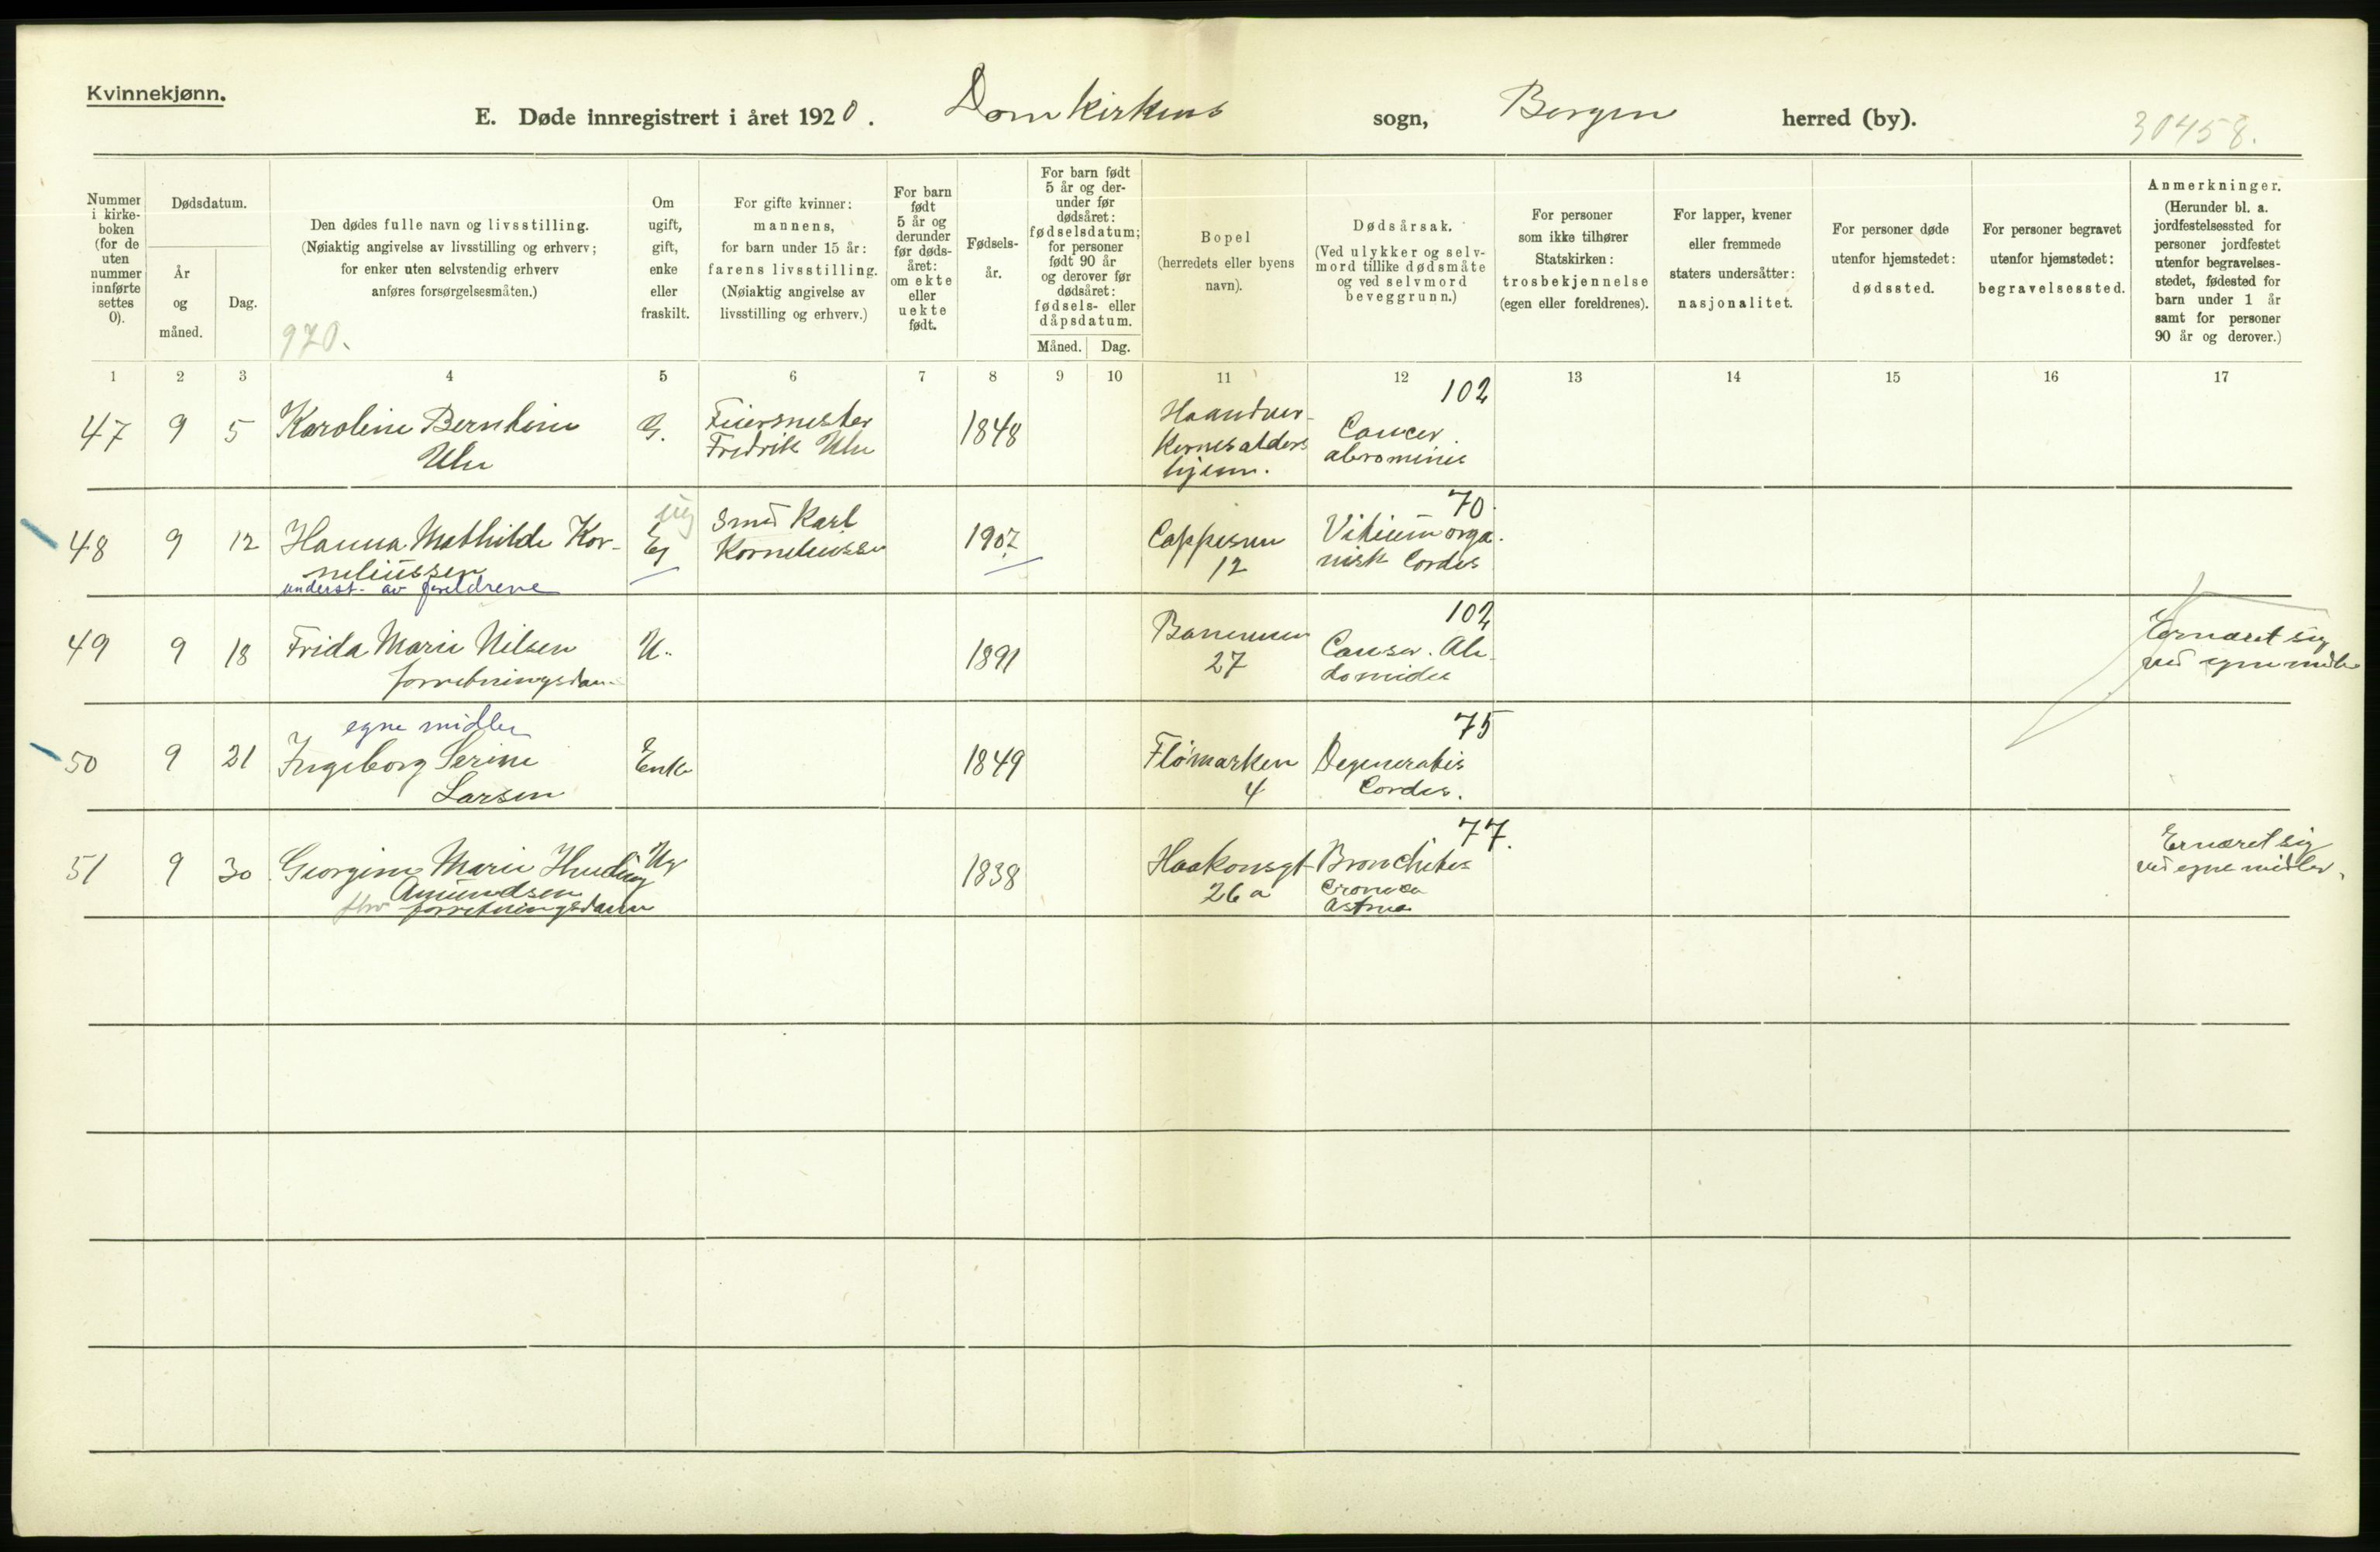 Kvinnekjønn.
E. Døde innregistrert i året 1920. Domkirkens sogn, Bergen herred (by). 30458.
Nummer i kirke-boken (for de uten nummer innførte settes 0).
Dødsdatum.
År og måned.
Dag.
Den dødes fulle navn og livsstilling.
(Nøiaktig angivelse av livsstilling og erhverv;
for enker uten selvstendig erhverv
anføres forsørgelsesmåten.)
920.
Om ugift, gift, enke eller fraskilt.
For gifte kvinner:
mannens,
for barn under 15 år:
farens livsstilling.
(Nøiaktig angivelse av
livsstilling og erhverv.)
For barn født 5 år og derunder før døds-året: om ekte eller uekte født.
Fødsels-år.
For barn født 5 år og der-under før dødsåret: fødselsdatum; for personer født 90 år og derover før dødsåret: fødsels- eller dåpsdatum.
Måned. Dag.
Bopel
(herredets eller byens
navn).
Dødsårsak.
(Ved ulykker og selv-
mord tillike dødsmåte
og ved selvmord
beveggrunn.)
For personer
som ikke tilhører
Statskirken:
trosbekjennelse
(egen eller foreldrenes).
For lapper, kvener
eller fremmede
staters undersåtter:
nasjonalitet.
For personer døde
utenfor hjemstedet:
dødssted.
For personer begravet
utenfor hjemstedet:
begravelsessted.
Anmerkninger.
(Herunder bl. a.
jordfestelsessted for
personer jordfestet
utenfor begravelses-
stedet, fødested for
barn under 1 år
samt for personer
90 år og derover.)
1 2 3 4 5 6 7 8 9 10 11 12 13 14 15 16 17
102
47 9 5 Karoline Berntine G. Feiermester 1848 Haandver- Cancer
Uhr Fredrik Uhr kernes alders abrominis
hjem.
70.
48 9 12 Hanna Mathilde Kor- ug Eg Smed Karl 1907 Cappesmu Vitium orga-
neliussen Korneliussen 12 nisk Cordis
underst. av foreldrene
102
49 9 18 Frida Marie Nilsen U. 1891 Baneveien Canser. Ab- Ernæret sig
forretningsdam. 27 domides ved egne midler
egne midler 75
50 9 21 Ingeborg Serine Enke 1849 Flömarken Degeneratis
Larsen 4 Cordis.
77.
51 9 30 Georgine Marie Huding Ug 1838 Haakonsgt Bronchites Ernæret sig
Amundsen 26 a Cronica ved egne midler.
fhv forretningsdame Astma